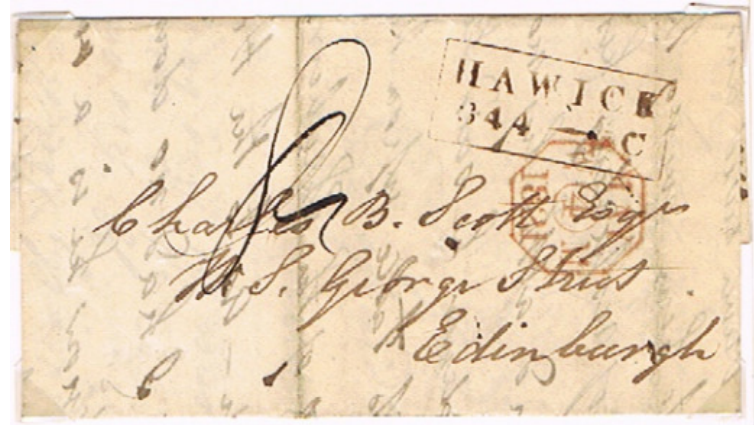 HAWICK
344 C
8
1831
Charles B. Scott Esqr
W. S. George Street
Edinburgh